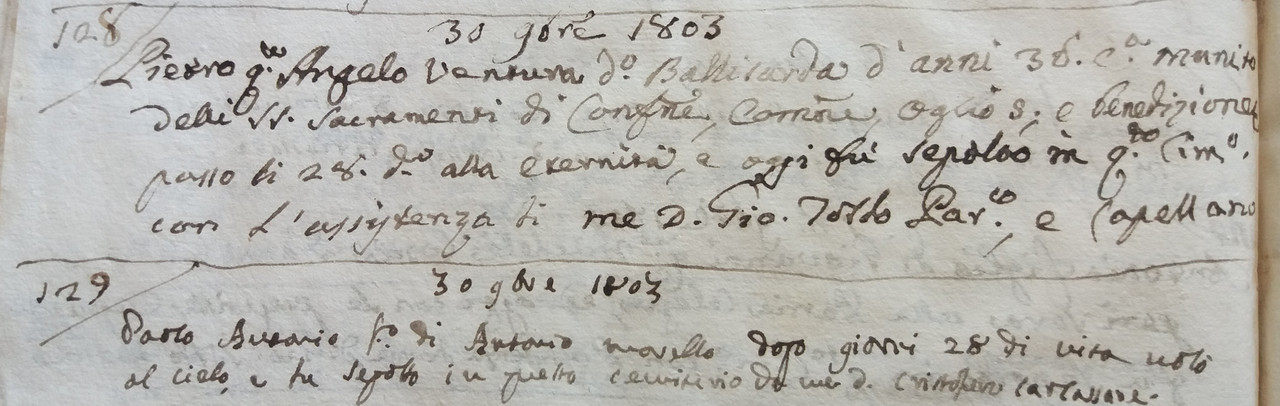 128
30 9bre 1803
Pietro q.m Angelo Ventura d.o d'anni 38. c.a munito
delli SS. Sacramenti di Confne, Comne, Oglio S. e benedizione
passò li 28. d.o alla eternità, e oggi fù sepolto in q.to Cim.o.
con l'assistenza di me D. Gio. Toldo Par.co, e Capellano
129
30 9bre 1803
Paolo Antonio f.o di Antonio morello dopo giorni 28 di vita volò
al cielo, e fu sepolto in questo cemiterio da me d. Cristoforo